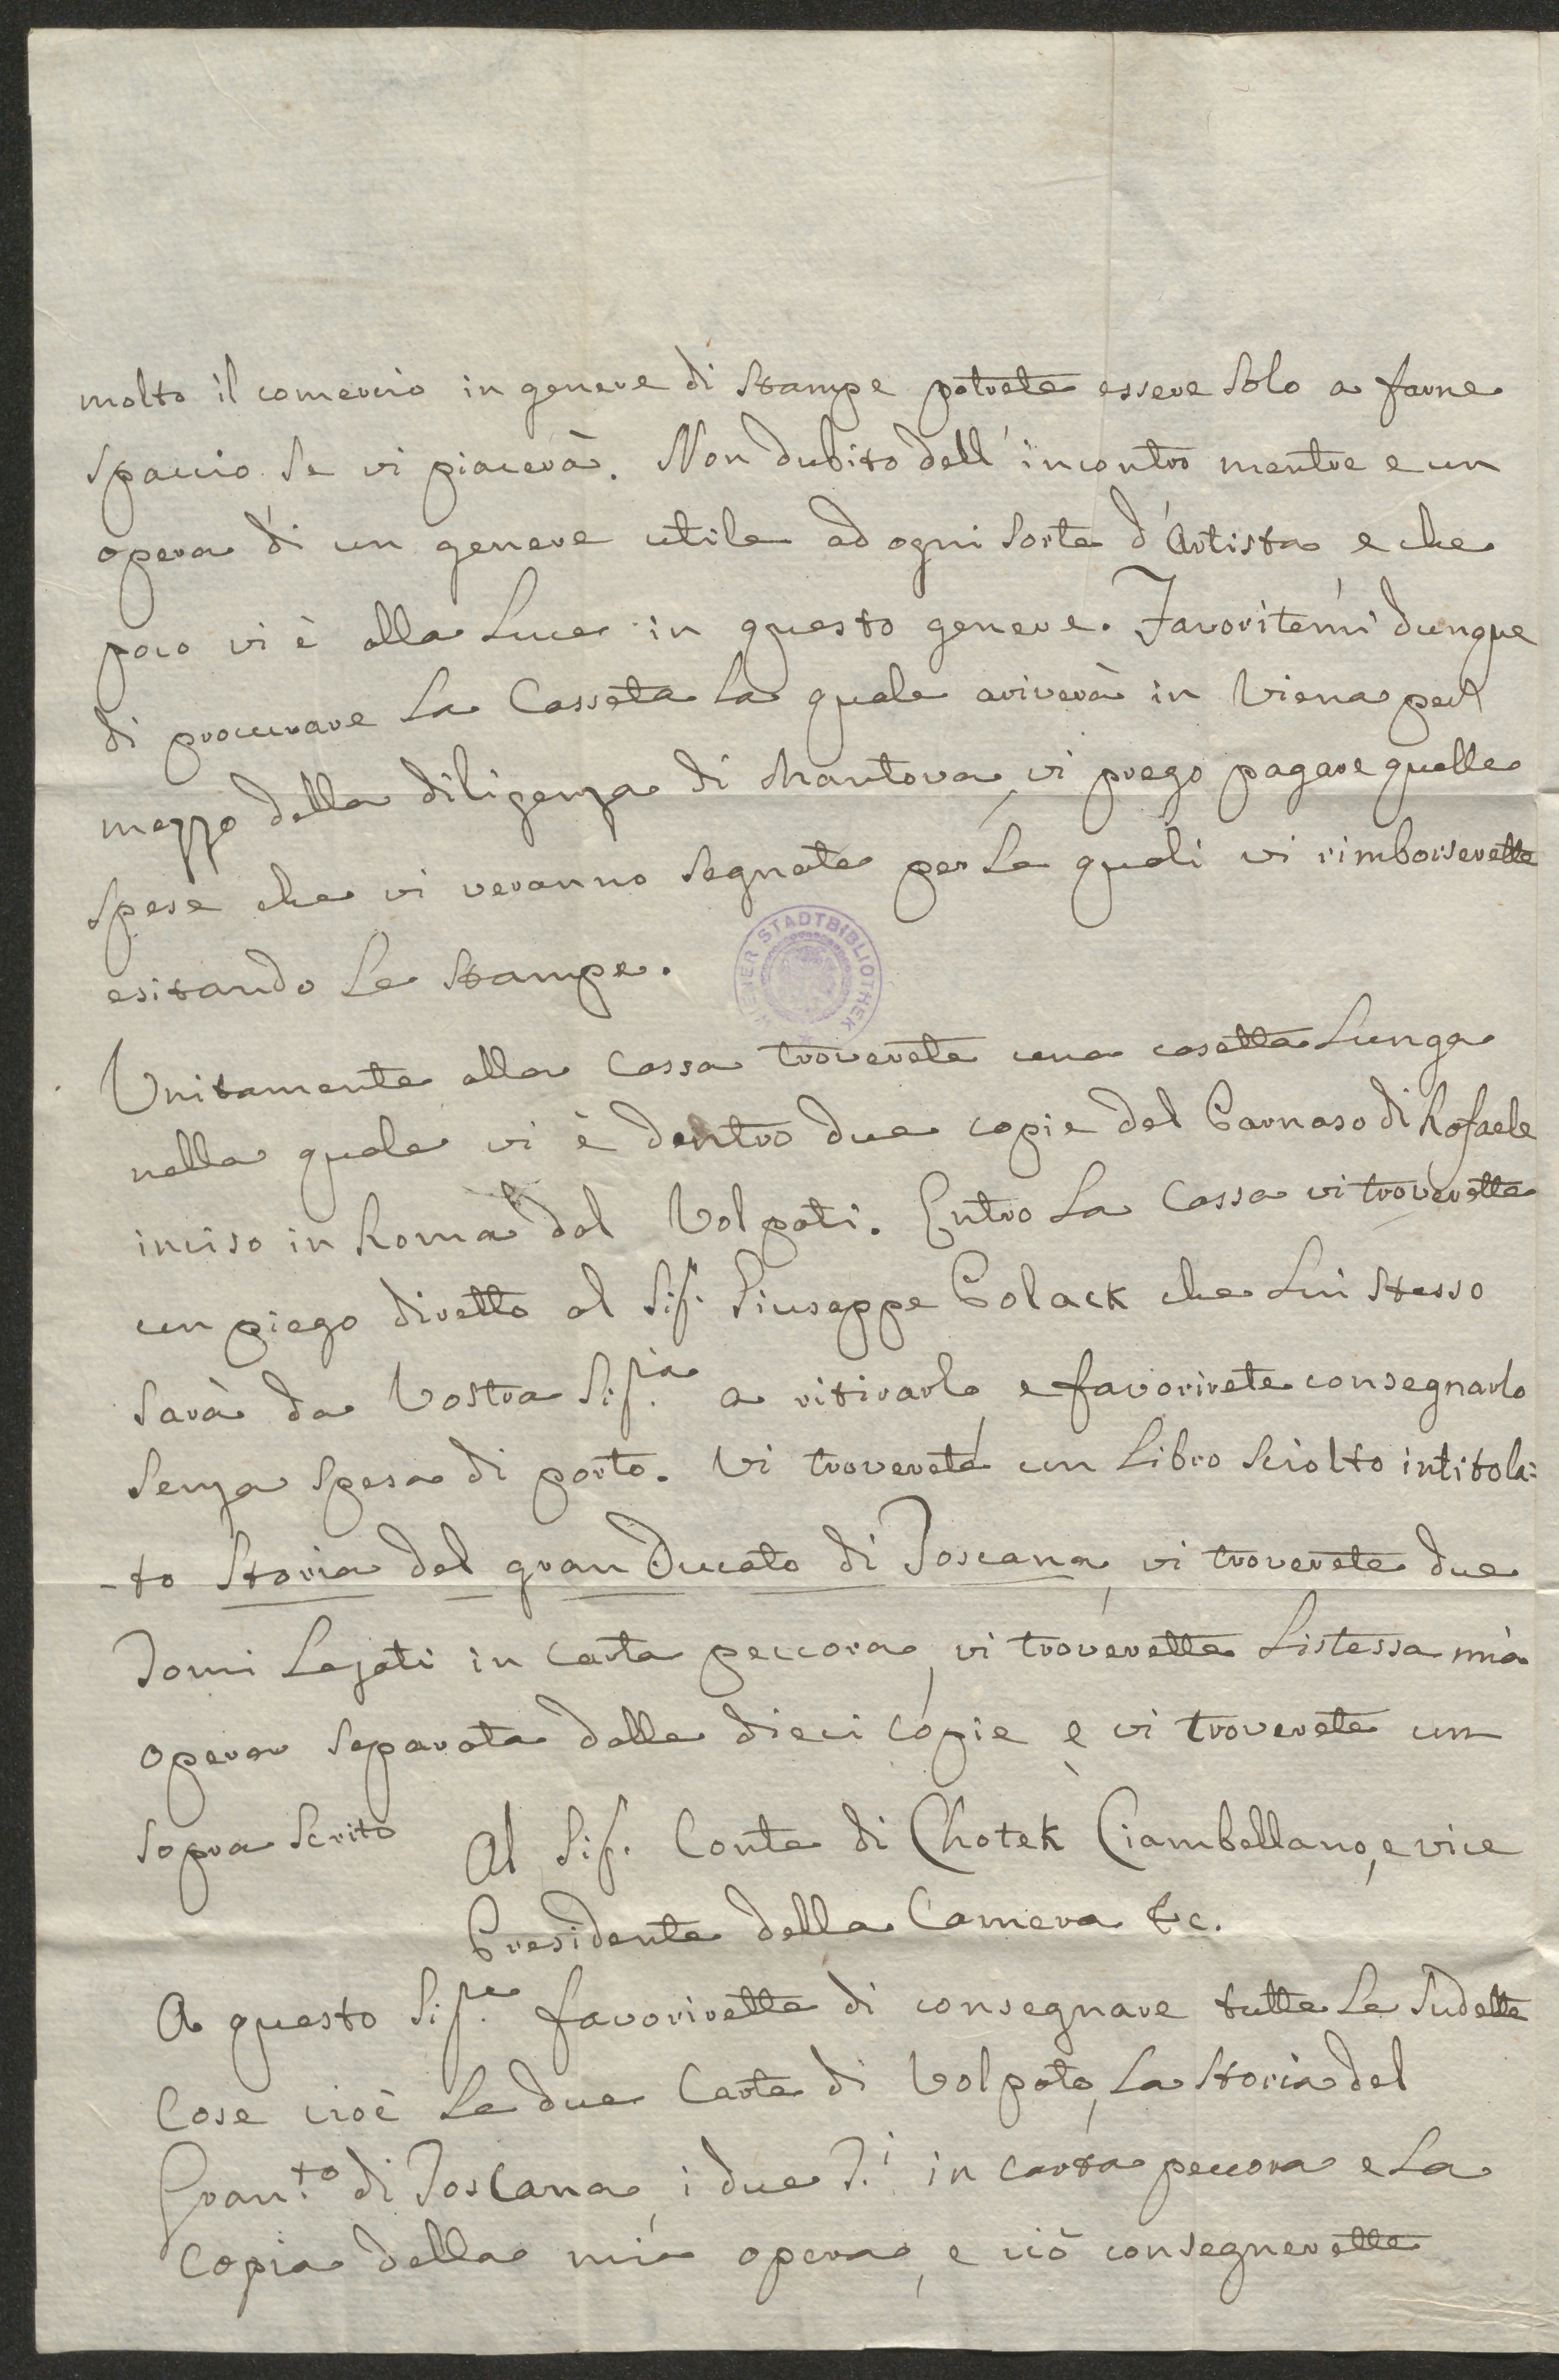 molto il comercio in genere di Stampe potrete essere Solo a farne
Spaccio Se vi piacerà. Non dubito dell'incontro mentre e un
opera di un genere utile ad ogni Sorte d'Artista e che
poco vi è alla Luce in questo genere. Favoritemi dunque
di procurare La Casseta La quale ariverà in Viena pel
mezzo della diligenza di Mantova, vi prego pagare quelle
Spese che vi veranno Segnate per Le quali vi rimborserette
esitando Le Stampe.
WIENER STADTBIBLIOTHEK
Unitamente alla Cassa troverete una casetta Lunga
nella quale vi è dentro due copie del Parnaso di Rafaele
inciso in Roma dal Volpati. Entro La Cassa vi troverette
un piego diretto al Sig.r Giuseppe Polack che Lui Stesso
Sarà da Vostra Sig.ia a ritirarlo, e favorirete consegnarlo
Senza Spesa di porto. Vi troverete un Libro Sciolto intitola=
-to Storia del gran Ducato di Toscana, vi troverete due
Tomi Legati in Carta peccora, vi troverette Listessa mia
opera Separata dalle dieci copie e vi troverete un
Sopra Scrito Al Sig. Conte di Chotek Ciambellano, e vice
Presidente della Camera &c.
A questo Sig.re favorirette di consegnare tutte Le Sudette
Cose cioè Le due Carte di Volpato, La Storia del
Gran.to di Toscana, i due T.i in carta peccora e La
Copia della mia opera, e ciò consegnerette